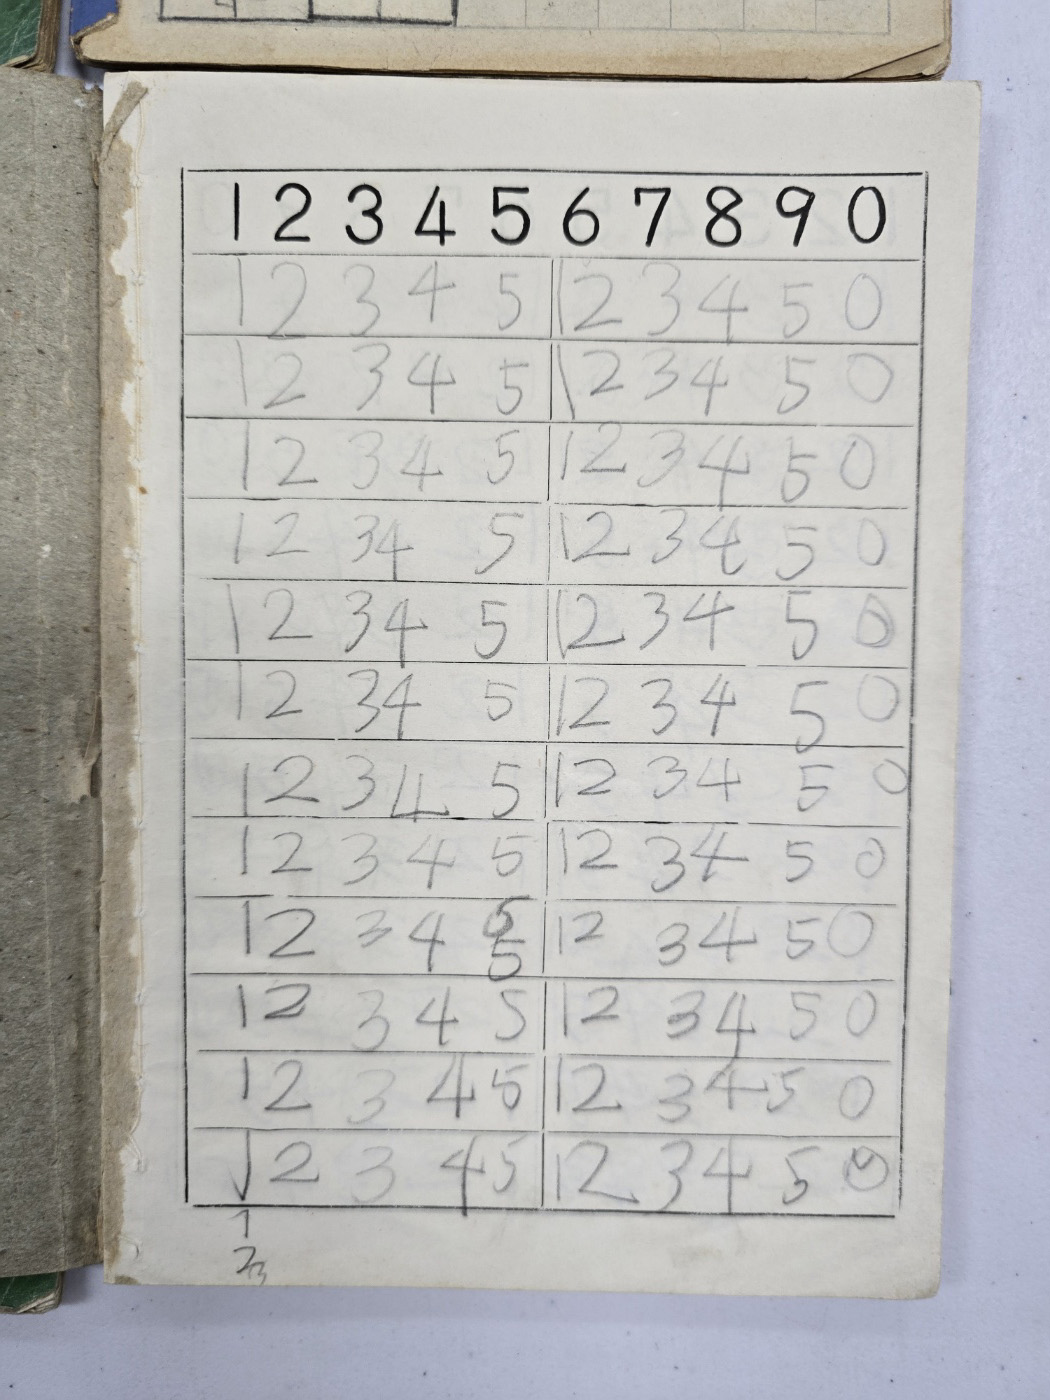 1 2 3 4 5 6 7 8 9 0
1 2 3 4 5 1 2 3 4 5 0
1 2 3 4 5 1 2 3 4 5 0
1 2 3 4 5 1 2 3 4 5 0
1 2 3 4 5 1 2 3 4 5 0
1 2 3 4 5 1 2 3 4 5 0
1 2 3 4 5 1 2 3 4 5 0
1 2 3 4 5 1 2 3 4 5 0
1 2 3 4 5 1 2 3 4 5 0
1 2 3 4 5 1 2 3 4 5 0
5
1 2 3 4 5 1 2 3 4 5 0
1 2 3 4 5 1 2 3 4 5 0
1 2 3 4 5 1 2 3 4 5 0
1
2 3